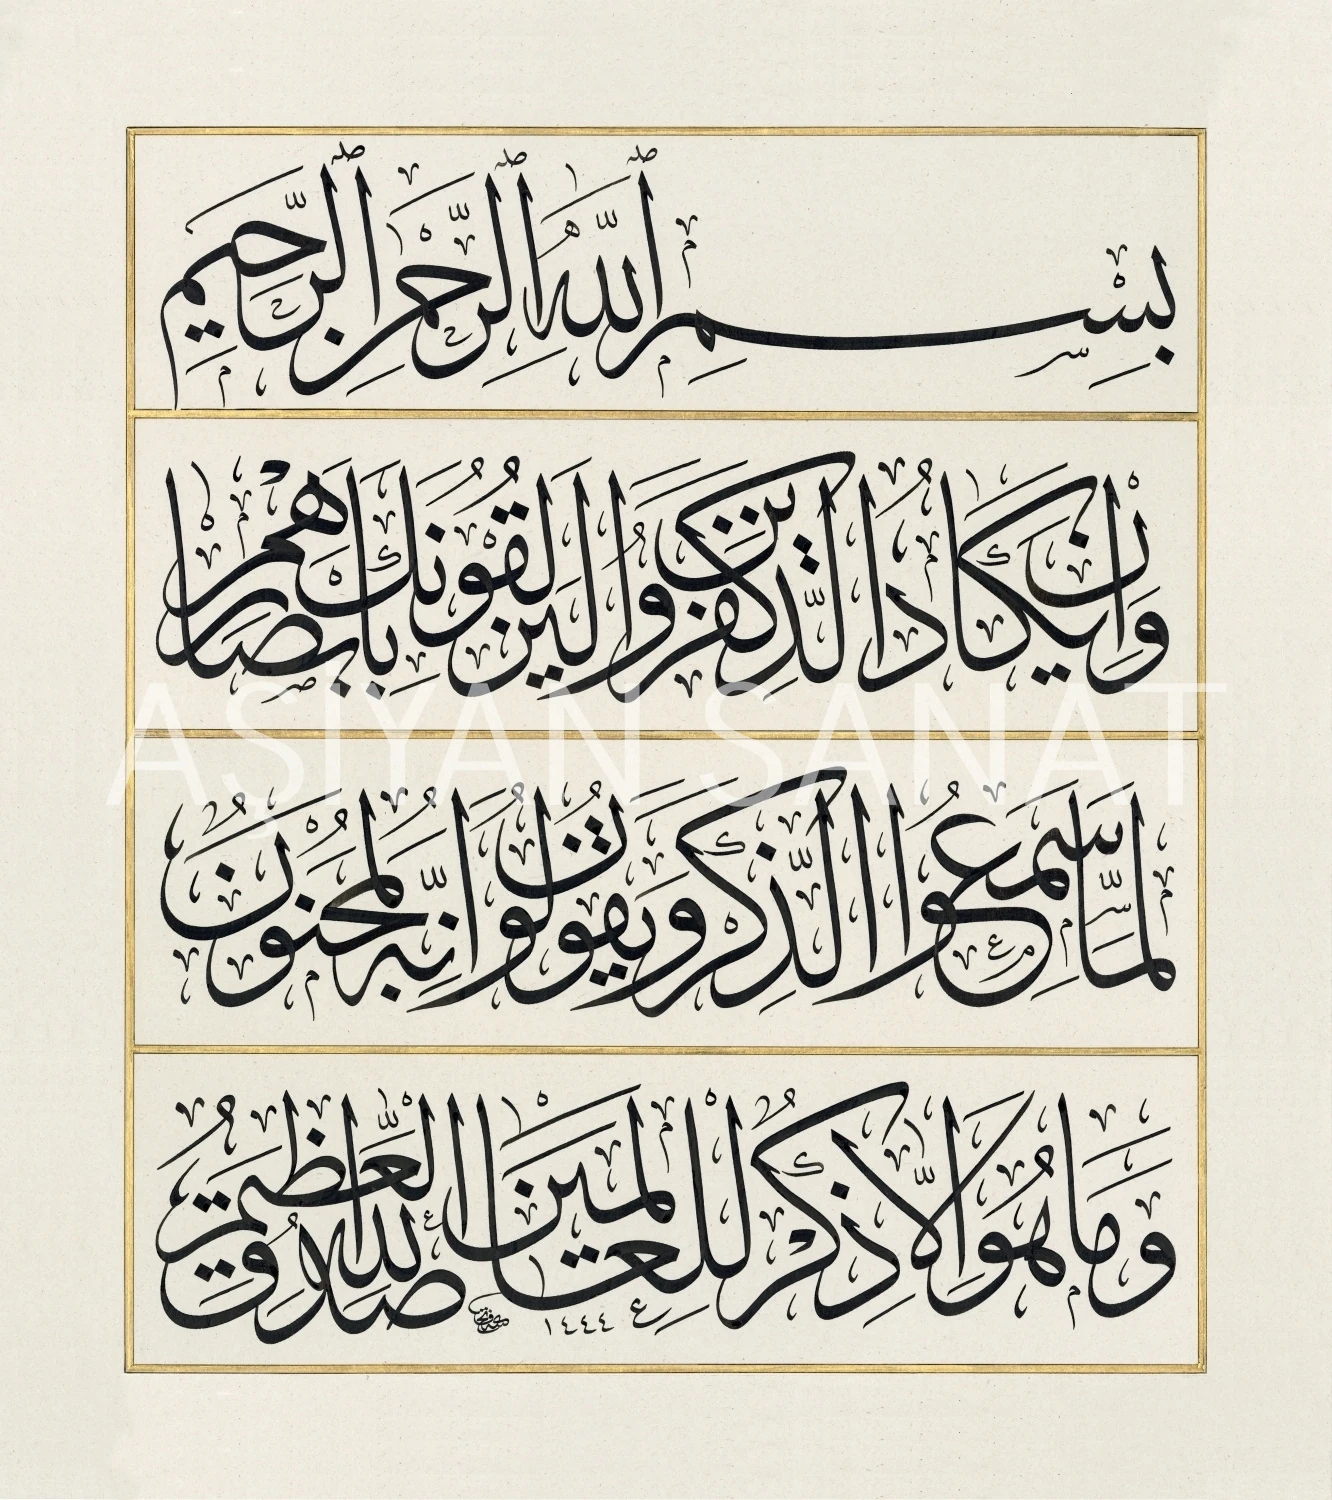 بِسْمِ ٱللَّهِ ٱلرَّحْمٰنِ ٱلرَّحِيمِ
وَإِنْ يَكَادُ الَّذِينَ كَفَرُوا لَيُزْلِقُونَكَ بِأَبْصَارِهِمْ
لَمَّا سَمِعُوا الذِّكْرَ وَيَقُولُونَ إِنَّهُ لَمَجْنُونٌ
وَمَا هُوَ إِلَّا ذِكْرٌ لِلْعَالَمِينَ صَدَقَ اللّٰهُ الْعَظِيمُ
١٤٤٤
AŞİYAN SANAT